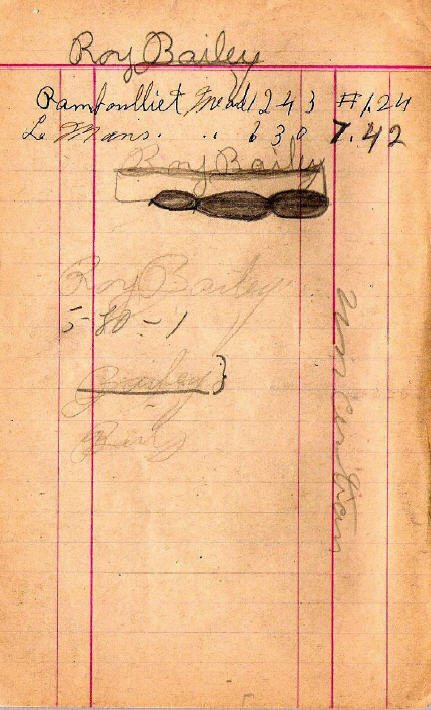 Roy Bailey
Ramboulliet Mead 1243 #1.24
Le Mans . " 630 7.42
Roy Baily
Roy Bailey
5-80-1
Bailey}